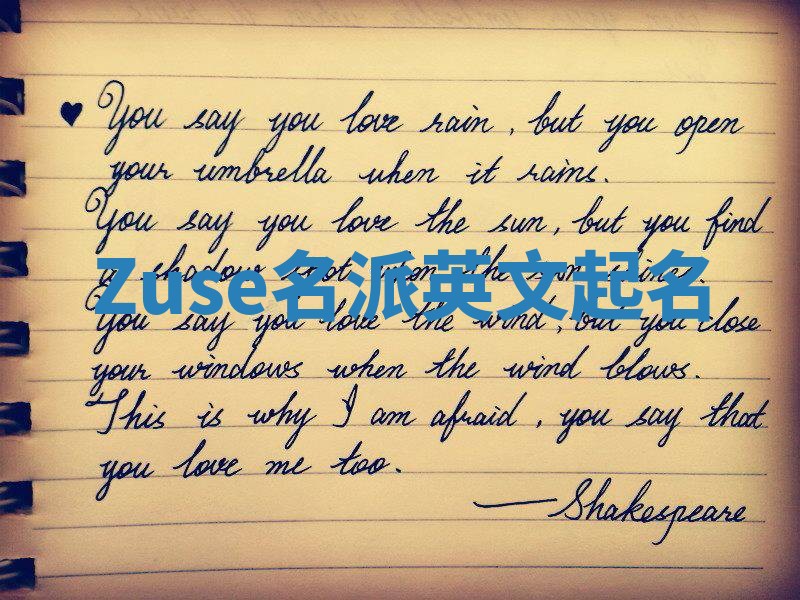 ♥ You say you love rain, but you open
your umbrella when it rains.
You say you love the sun, but you find
a shadow spot when the sun shines.
Zuse名派英文起名
You say you love the wind, but you close
your windows when the wind blows.
This is why I am afraid, you say that
you love me too.
—Shakespeare